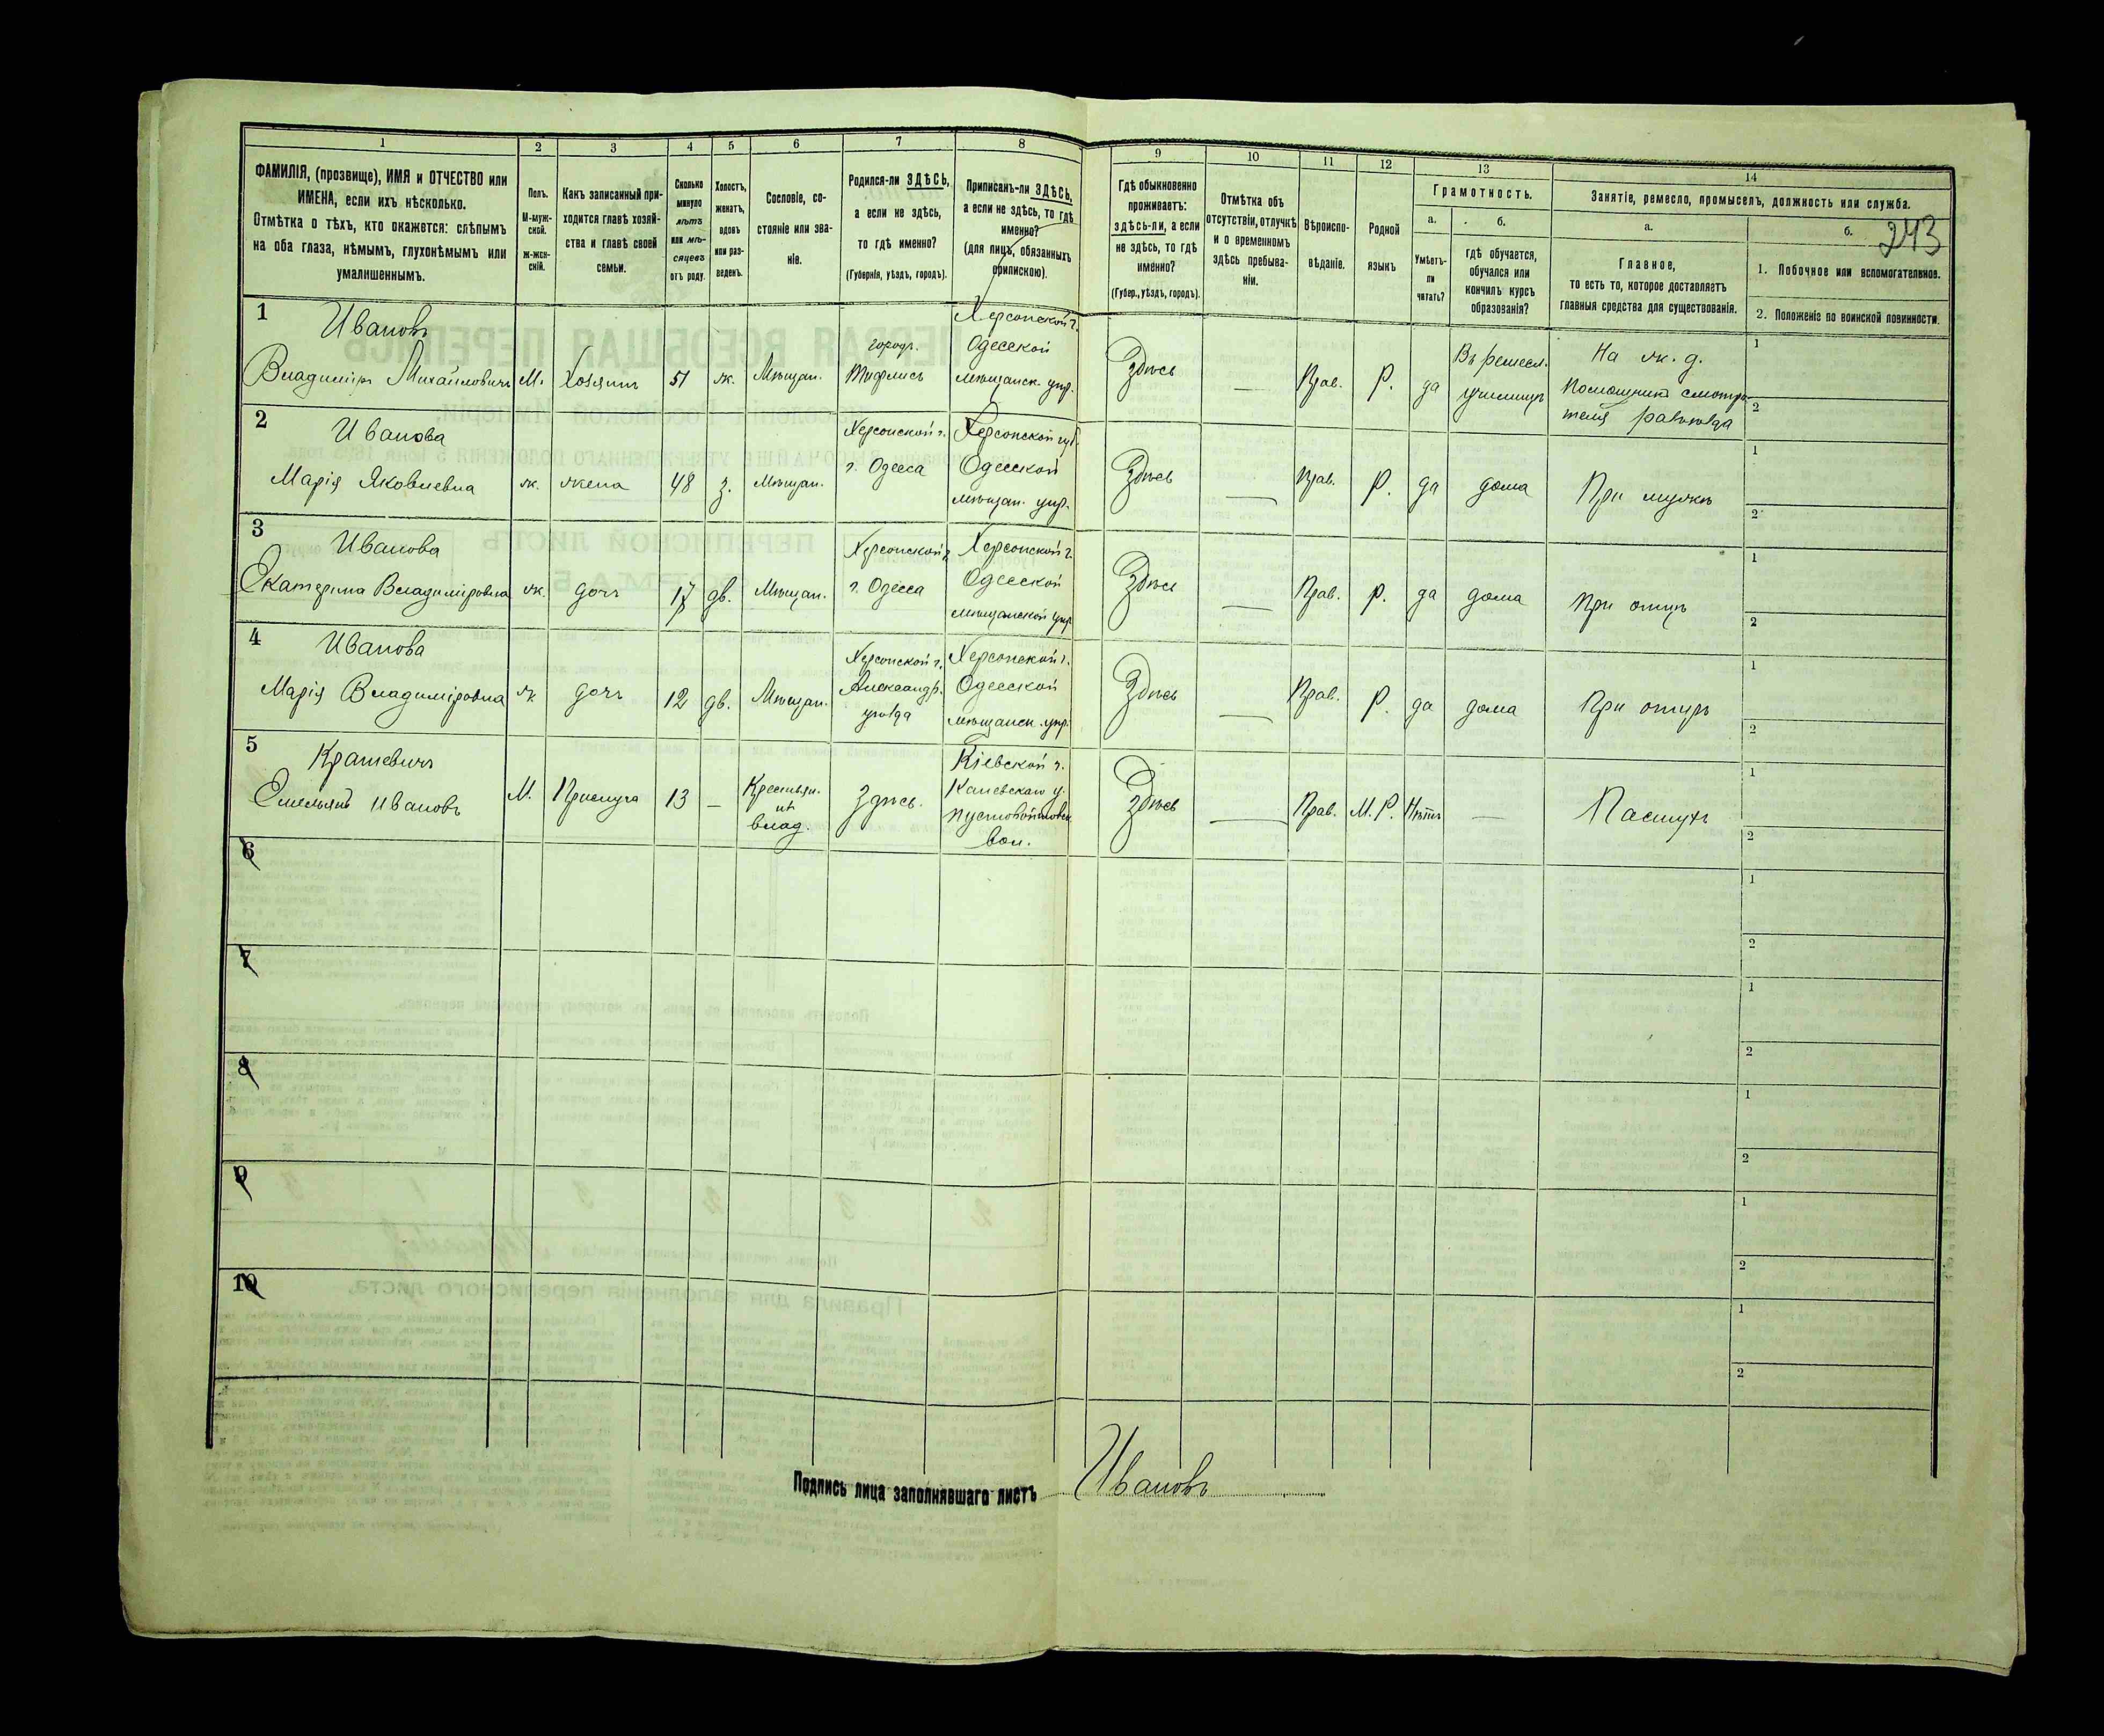 243
1
2
3
4
5
6
7
8
9
10
11
12
13
14
ФАМИЛІЯ, (прозвище), ИМЯ и ОТЧЕСТВО или
ИМЕНА, если ихъ нѣсколько.
Отмѣтка о тѣхъ, кто окажется: слѣпымъ
на оба глаза, нѣмымъ, глухонѣмымъ или
умалишеннымъ.
Полъ.
М-муж-
ской.
ж-жен-
скій.
Какъ записанный при-
ходится главѣ хозяй-
ства и главѣ своей
семьи.
Сколько
минуло
лѣтъ
или мѣ-
сяцевъ
отъ роду.
Холостъ,
женатъ,
вдовъ
или раз-
веденъ.
Сословіе, со-
стояніе или зва-
ніе.
Родился-ли ЗДѢСЬ,
а если не здѣсь,
то гдѣ именно?
(Губернія, уѣздъ, городъ).
Приписанъ-ли ЗДѢСЬ,
а если не здѣсь, то гдѣ
именно?
(для лицъ, обязанныхъ
припискою).
Гдѣ обыкновенно
проживаетъ:
здѣсь-ли, а если
не здѣсь, то гдѣ
именно?
(Губер., уѣздъ, городъ).
Отмѣтка объ
отсутствіи, отлучкѣ
и о временномъ
здѣсь пребыва-
ніи.
Вѣроиспо-
вѣданіе.
Родной
языкъ
Грамотность.
а.
Умѣетъ-
ли
читать?
б.
гдѣ обучается,
обучался или
кончилъ курсъ
образованія?
Занятіе, ремесло, промыселъ, должность или служба.
а.
Главное,
то есть то, которое доставляетъ
главныя средства для существованія.
б.
1. Побочное или вспомогательное.
2. Положеніе по воинской повинности.
1
Ивановъ
Владиміръ Михайловичъ
М.
Хозяинъ
51
ж.
Мѣщан.
городъ.
Тифлисъ
Херсонской г.
Одесской
мѣщанск. упр.
Здѣсь
—
Прав.
Р.
да
Въ ремесл.
училищѣ
На ж. д.
Помошникъ смотри-
теля разъѣзда
1
2
2
Иванова
Марія Яковлевна
ж.
жена
48
з.
Мѣщан.
Херсонской г.
г. Одесса
Херсонской губ.
Одесской
мѣщан. упр.
Здѣсь
—
Прав.
Р.
да
дома
При мужѣ
1
2
3
Иванова
Екатерина Владиміровна
ж.
дочь
17
дв.
Мѣщан.
Херсонской г.
г. Одесса
Херсонской г.
Одесской
мѣщанской упр
Здѣсь
—
Прав.
Р.
да
дома
При отцѣ
1
2
4
Иванова
Марія Владиміровна
ж
дочь
12
дв.
Мѣщан.
Херсонской г.
Александр.
уѣзда
Херсонской г.
Одесской
мѣщанск. упр.
Здѣсь
—
Прав.
Р.
да
дома
При отцѣ
1
2
5
Крашевичъ
Емельянъ Ивановъ
М.
Прислуга
13
—
Крестьян.
изъ
влад.
Здѣсь.
Кіевской г.
Каневскаго у.
вол.
Здѣсь
—
Прав.
М. Р.
Нѣтъ
—
Пастухъ
1
2
6
1
2
7
1
2
8
1
2
9
1
2
10
1
2
Подпись лица заполнявшаго листъ Ивановъ